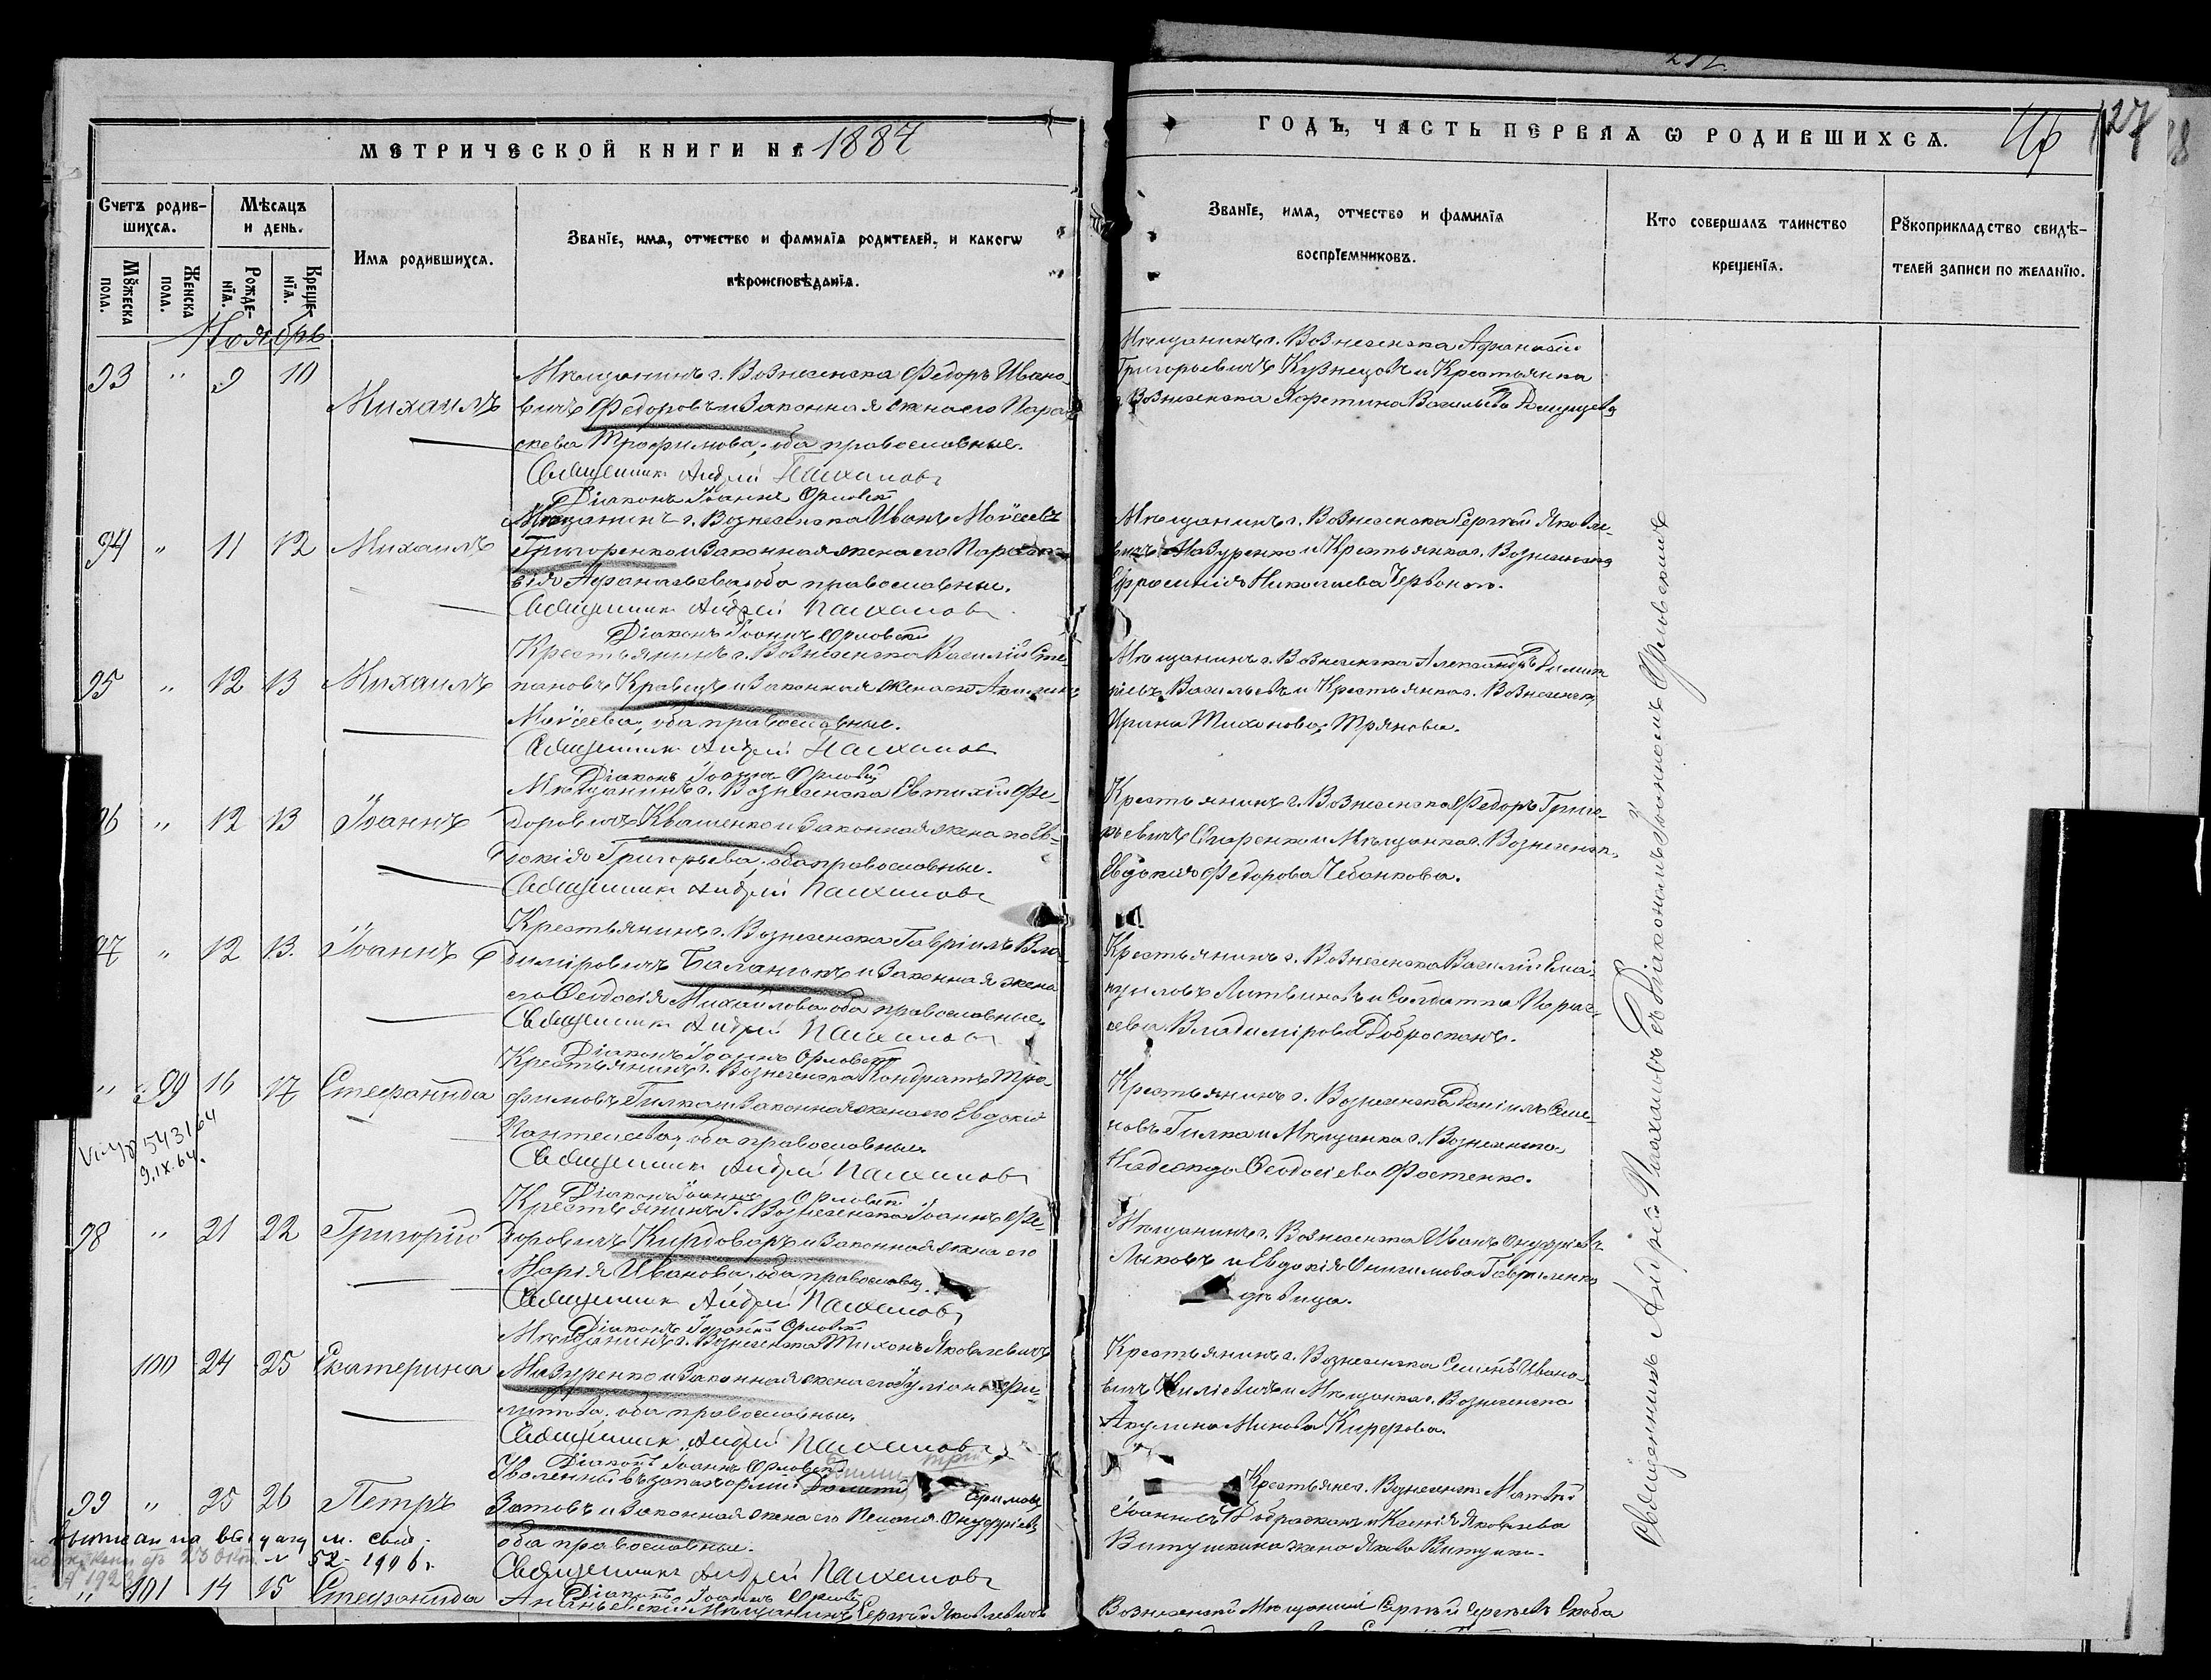 МЕТРИЧЕСКОЙ КНИГИ НА 1887
ГОДЪ, ЧАСТЬ ПЕРВАЯ Ѡ РОДИВШИХСЯ.
127
Счетъ родив-
шихся.
Мѣсяцъ
и день.
Мꙋжеска
пола.
Женска
пола.
Рожде-
нїя.
Креще-
нїя.
Имя родившихся.
Званїе, имя, отчество и фамилїя родителей, и какогѡ
вѣроисповѣданїя.
Званїе, имя, отчество и фамилїя
воспрїемниковъ.
Кто совершалъ таинство
крещенїя.
Рꙋкоприкладство свидѣ-
телей записи по желанїю.
Ноябрь
93 " 9 10 Михаилъ
Мѣщанинъ г. Вознесенска Федоръ Ивано-
вичъ Федоровъ и законная жена его Парас-
кева Трофимова, оба православные.
Священникъ Андрей Палхаловъ
Діаконъ Іоаннъ Орловскій
Мѣщанинъ г. Вознесенска Афанасій
Григорьевичъ Кузнецовъ и Крестьянка
г. Вознесенска Харитина Васильева
94 " 11 12 Михаилъ
Мѣщанинъ г. Вознесенска Иванъ Моисеевъ
Григоренко и законная жена его Параске-
вія Афанасьева, оба православные.
Священникъ Андрей Палхаловъ
Діаконъ Іоаннъ Орловскій
Мѣщанинъ г. Вознесенска Сергѣй Яковле-
вичъ Мазуренко и Крестьянка г. Вознесенска
Ефросинія Николаева
95 " 12 13 Михаилъ
Крестьянинъ г. Вознесенска Василій Сте-
пановъ Кравецъ и законная жена его Акилина
Моисеева, оба православные.
Священникъ Андрей Палхаловъ
Діаконъ Іоаннъ Орловскій
Мѣщанинъ г. Вознесенска Александръ Димит-
ріевъ Васильевъ и Крестьянка г. Вознесенска
Ирина Тихонова
96 " 12 13 Іоаннъ
Мѣщанинъ г. Вознесенска Евтихій Фе-
доровичъ Квашенко и законная жена его Ев-
докія Григорьева, оба православные.
Священникъ Андрей Палхаловъ
Крестьянинъ г. Вознесенска Федоръ Григо-
рьевичъ и Мѣщанка г. Вознесенска
Евдокія Федорова Чебанкова.
97 " 12 13. Іоаннъ
Крестьянинъ г. Вознесенска Гавріилъ Вла-
диміровичъ Баланюкъ и законная жена
его Феодосія Михайлова, оба православные.
Священникъ Андрей Палхаловъ
Діаконъ Іоаннъ Орловскій
Крестьянинъ г. Вознесенска Василій
Литвиновъ и Солдатка Парас-
кева Владимірова Доброскокъ.
" 99 16 17 Стефанида
Крестьянинъ г. Вознесенска Кондратъ Тро-
фимовъ Гилка и законная жена его Евдокія
Пантелеева, оба православные.
Священникъ Андрей Палхаловъ
Діаконъ Іоаннъ Орловскій
Крестьянинъ г. Вознесенска Даніилъ Семе-
новъ Гилка и Мѣщанка г. Вознесенска
Надежда Феодосіева Фостенко.
543164
9.IX.64.
98 " 21 22 Григорій
Крестьянинъ г. Вознесенска Іоаннъ Фе-
доровичъ Кирдоваръ и законная жена его
Марія Иванова, оба православн.
Священникъ Андрей Палхаловъ
Діаконъ Іоаннъ Орловскій
Мѣщанинъ г. Вознесенска Иванъ Онуфріевъ
Лыковъ и Евдокія Онисимова Гавриленко
дѣвица.
" 100 24 25 Екатерина
Мѣщанинъ г. Вознесенска Тихонъ Яковлевичъ
Мазуренко и законная жена его Іуліанія Фи-
липова, оба православные.
Священникъ Андрей Палхаловъ
Діаконъ Іоаннъ Орловскій
Крестьянинъ г. Вознесенска Семенъ Ивано-
вичъ и Мѣщанка г. Вознесенска
Акулина Минова
99 " 25 26 Петръ
Уволенный въ запасъ арміи
Зотовъ и законная жена его Онуфріева
оба православные.
Священникъ Андрей Палхаловъ
Діаконъ Іоаннъ Орловскій
Крестьяне г. Вознесенска Матвѣй
Іоанновъ Доброскокъ и Ксенія Яковлева
Витушкина жена Якова
52 1906 г.
" 101 14 15 Стефанида
Ананьевскій Мѣщанинъ Сергѣй Яковлевичъ
Вознесенскій Мѣщанинъ Сергѣй Сергѣевъ Скоба
Священникъ Андрей Палхаловъ съ Діакономъ Іоанномъ Орловскимъ